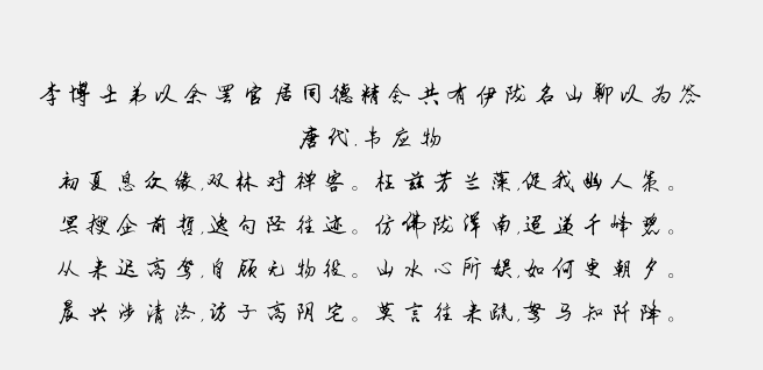 李博士弟以余罢官居同德精舍共有伊陇名山聊以为答
唐代.韦应物
初夏息众缘,双林对禅客。枉兹芳兰藻,促我幽人策。
冥搜企前哲,逸句陉往迹。仿佛陇浑南,迢递千峰碧。
从来迟高驾,自顾无物役。山水心所娱,如何更朝夕。
晨兴涉清洛,访子高阴宅。莫言往来疏,驽马知阡陌。